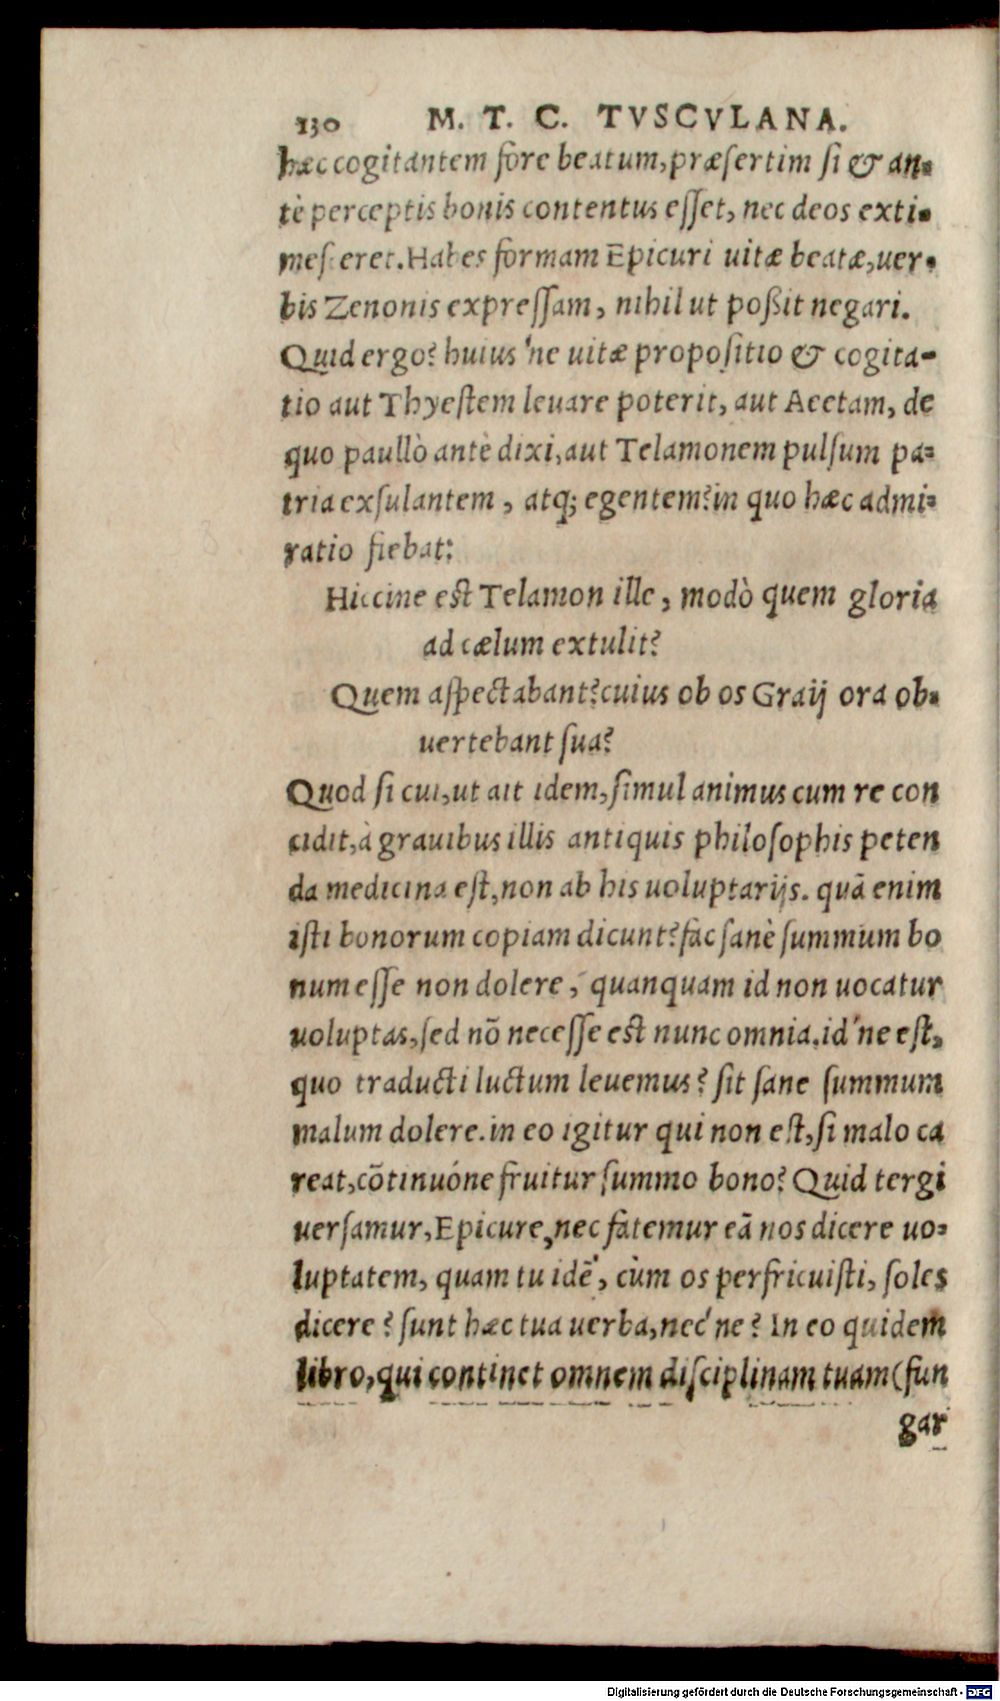 130 M. T. C. TVSCVLANA.
hæc cogitantem fore beatum, præsertim si & an-
tè perceptis bonis contentus esset, nec deos exti-
mesceret. Habes formam Epicuri uitæ beatæ, uer-
bis Zenonis expressam, nihil ut poßit negari.
Quid ergo? huius 'ne uitæ propositio & cogita-
tio aut Thyestem leuare poterit, aut Aeetam, de
quo paullò antè dixi, aut Telamonem pulsum pa-
tria exsulantem, atq; egentem? in quo hæc admi-
ratio fiebat:
Hiccine est Telamon ille, modò quem gloria
ad cælum extulit?
Quem aspectabant? cuius ob os Graij ora ob-
uertebant sua?
Quod si cui, ut ait idem, simul animus cum re con
cidit, à grauibus illis antiquis philosophis peten
da medicina est, non ab his uoluptarijs. quã enim
isti bonorum copiam dicunt? fac sanè summum bo
num esse non dolere, quanquam id non uocatur
uoluptas, sed nõ necesse est nunc omnia. id'ne est,
quo traducti luctum leuemus? sit sane summum
malum dolere. in eo igitur qui non est, si malo ca
reat, cõtinuóne fruitur summo bono? Quid tergi
uersamur, Epicure, nec fatemur eã nos dicere uo-
luptatem, quam tu idẽ, cùm os perfricuisti, soles
dicere? sunt hæc tua uerba, nec'ne? In eo quidem
libro, qui continet omnem disciplinam tuam (fun
gar
Digitalisierung gefördert durch die Deutsche Forschungsgemeinschaft - DFG